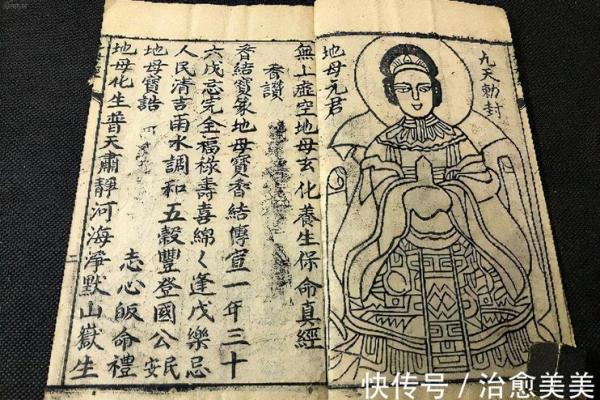 九天勅封
地母元君
無上虛空地母玄化養生保命真經
香讚
香結寶篆地母寶香結傳宣一年三十
六戊忌完全福祿壽喜綿々逢戊樂忌
人民清吉雨水調和五穀豐登國公民安
地母寶誥 志心皈命禮
地母化生普天肅靜河海淨默山嶽生
快传号/治愈美美